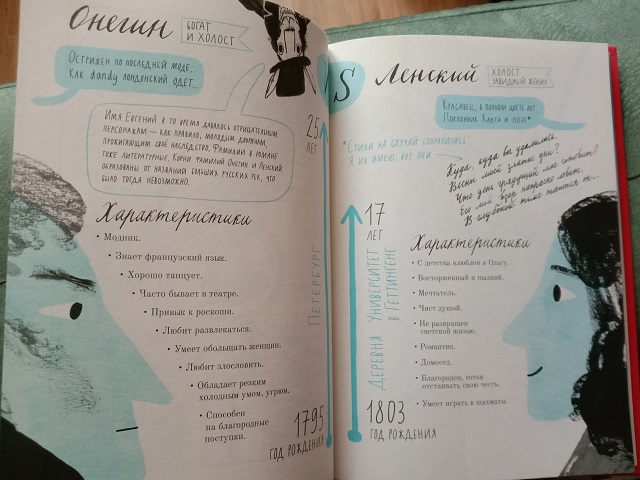 Онегин
БОГАТ
И ХОЛОСТ
Острижен по последней моде;
Как dandy лондонский одет...
Имя Евгений в то время давалось отрицательным
персонажам — как правило, молодым дворянам,
проживающим своё наследство. Фамилии в романе
тоже литературные. Корни фамилий Онегин и Ленский
образованы от названий больших русских рек, что
было тогда невозможно.
25
ЛЕТ
Характеристики
• Модник.
• Знает французский язык.
• Хорошо танцует.
• Часто бывает в театре.
• Привык к роскоши.
• Любит развлекаться.
• Умеет обольщать женщин.
• Любит злословить.
• Обладает резким
холодным умом, угрюм.
• Способен
на благородные
поступки.
ПЕТЕРБУРГ
1795
ГОД РОЖДЕНИЯ
VS
Ленский
ХОЛОСТ
ЗАВИДНЫЙ ЖЕНИХ
Красавец, в полном цвете лет,
Поклонник Канта и поэт*
*Стихи на случай сохранились
Я их имею; вот они
Куда, куда вы удалились,
Весны моей златые дни?
Что день грядущий мне готовит?
Его мой взор напрасно ловит,
В глубокой тьме таится он...
17
ЛЕТ
Деревня Университет
в Геттингене
1803
ГОД РОЖДЕНИЯ
Характеристики
• С детства влюблен в Ольгу.
• Восторженный и пылкий.
• Мечтатель.
• Чист душой.
• Не развращен
светской жизнью.
• Романтик.
• Домосед.
• Благороден, готов
отстаивать свою честь.
• Умеет играть в шахматы.